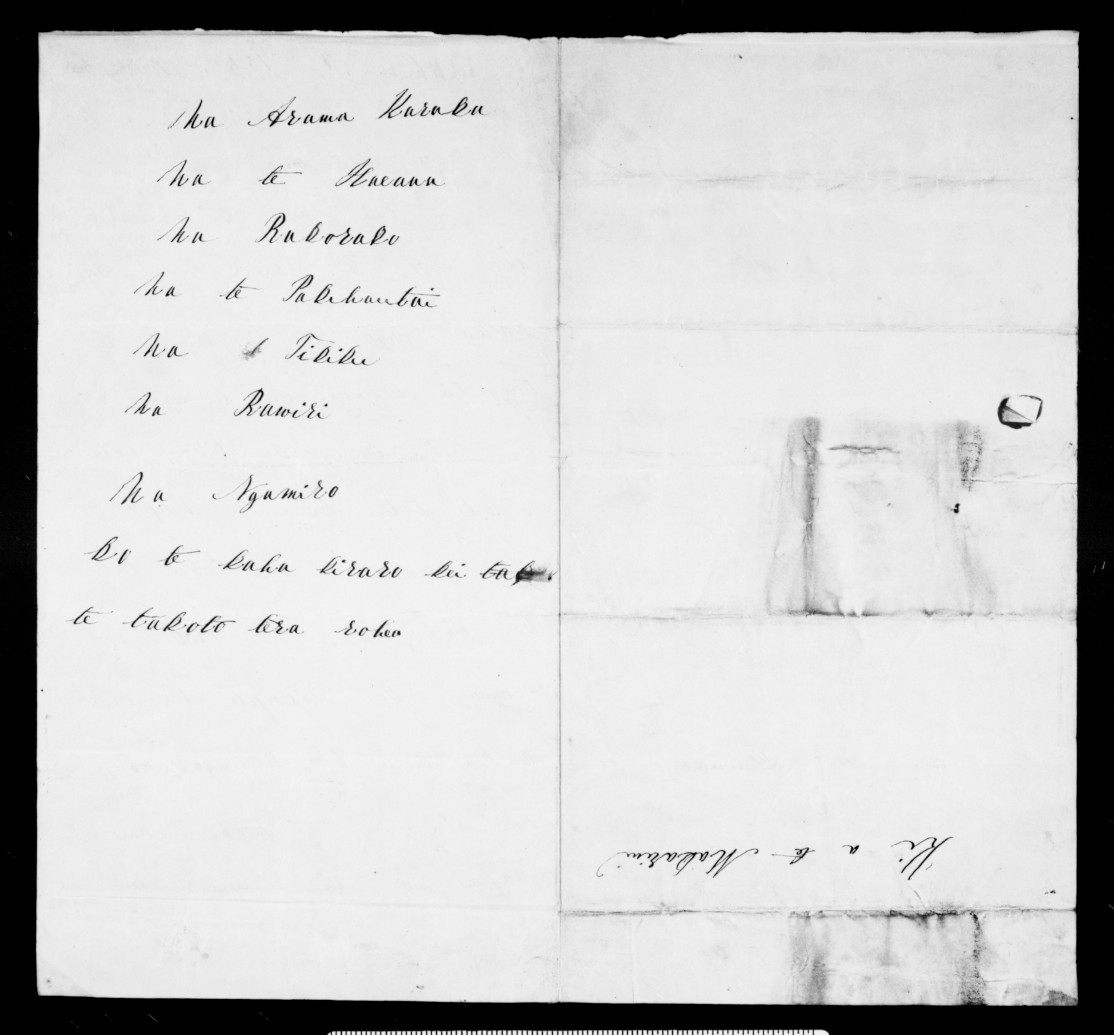 Na Arama Karaka
Na te Haeana
Na Rakorako
Na te Pakihautai
Na Tikiku
Na Rawiri
Na Ngamiro
ko te kaha kiraro kei
te takoto tera rohea
Ki a te Makarini